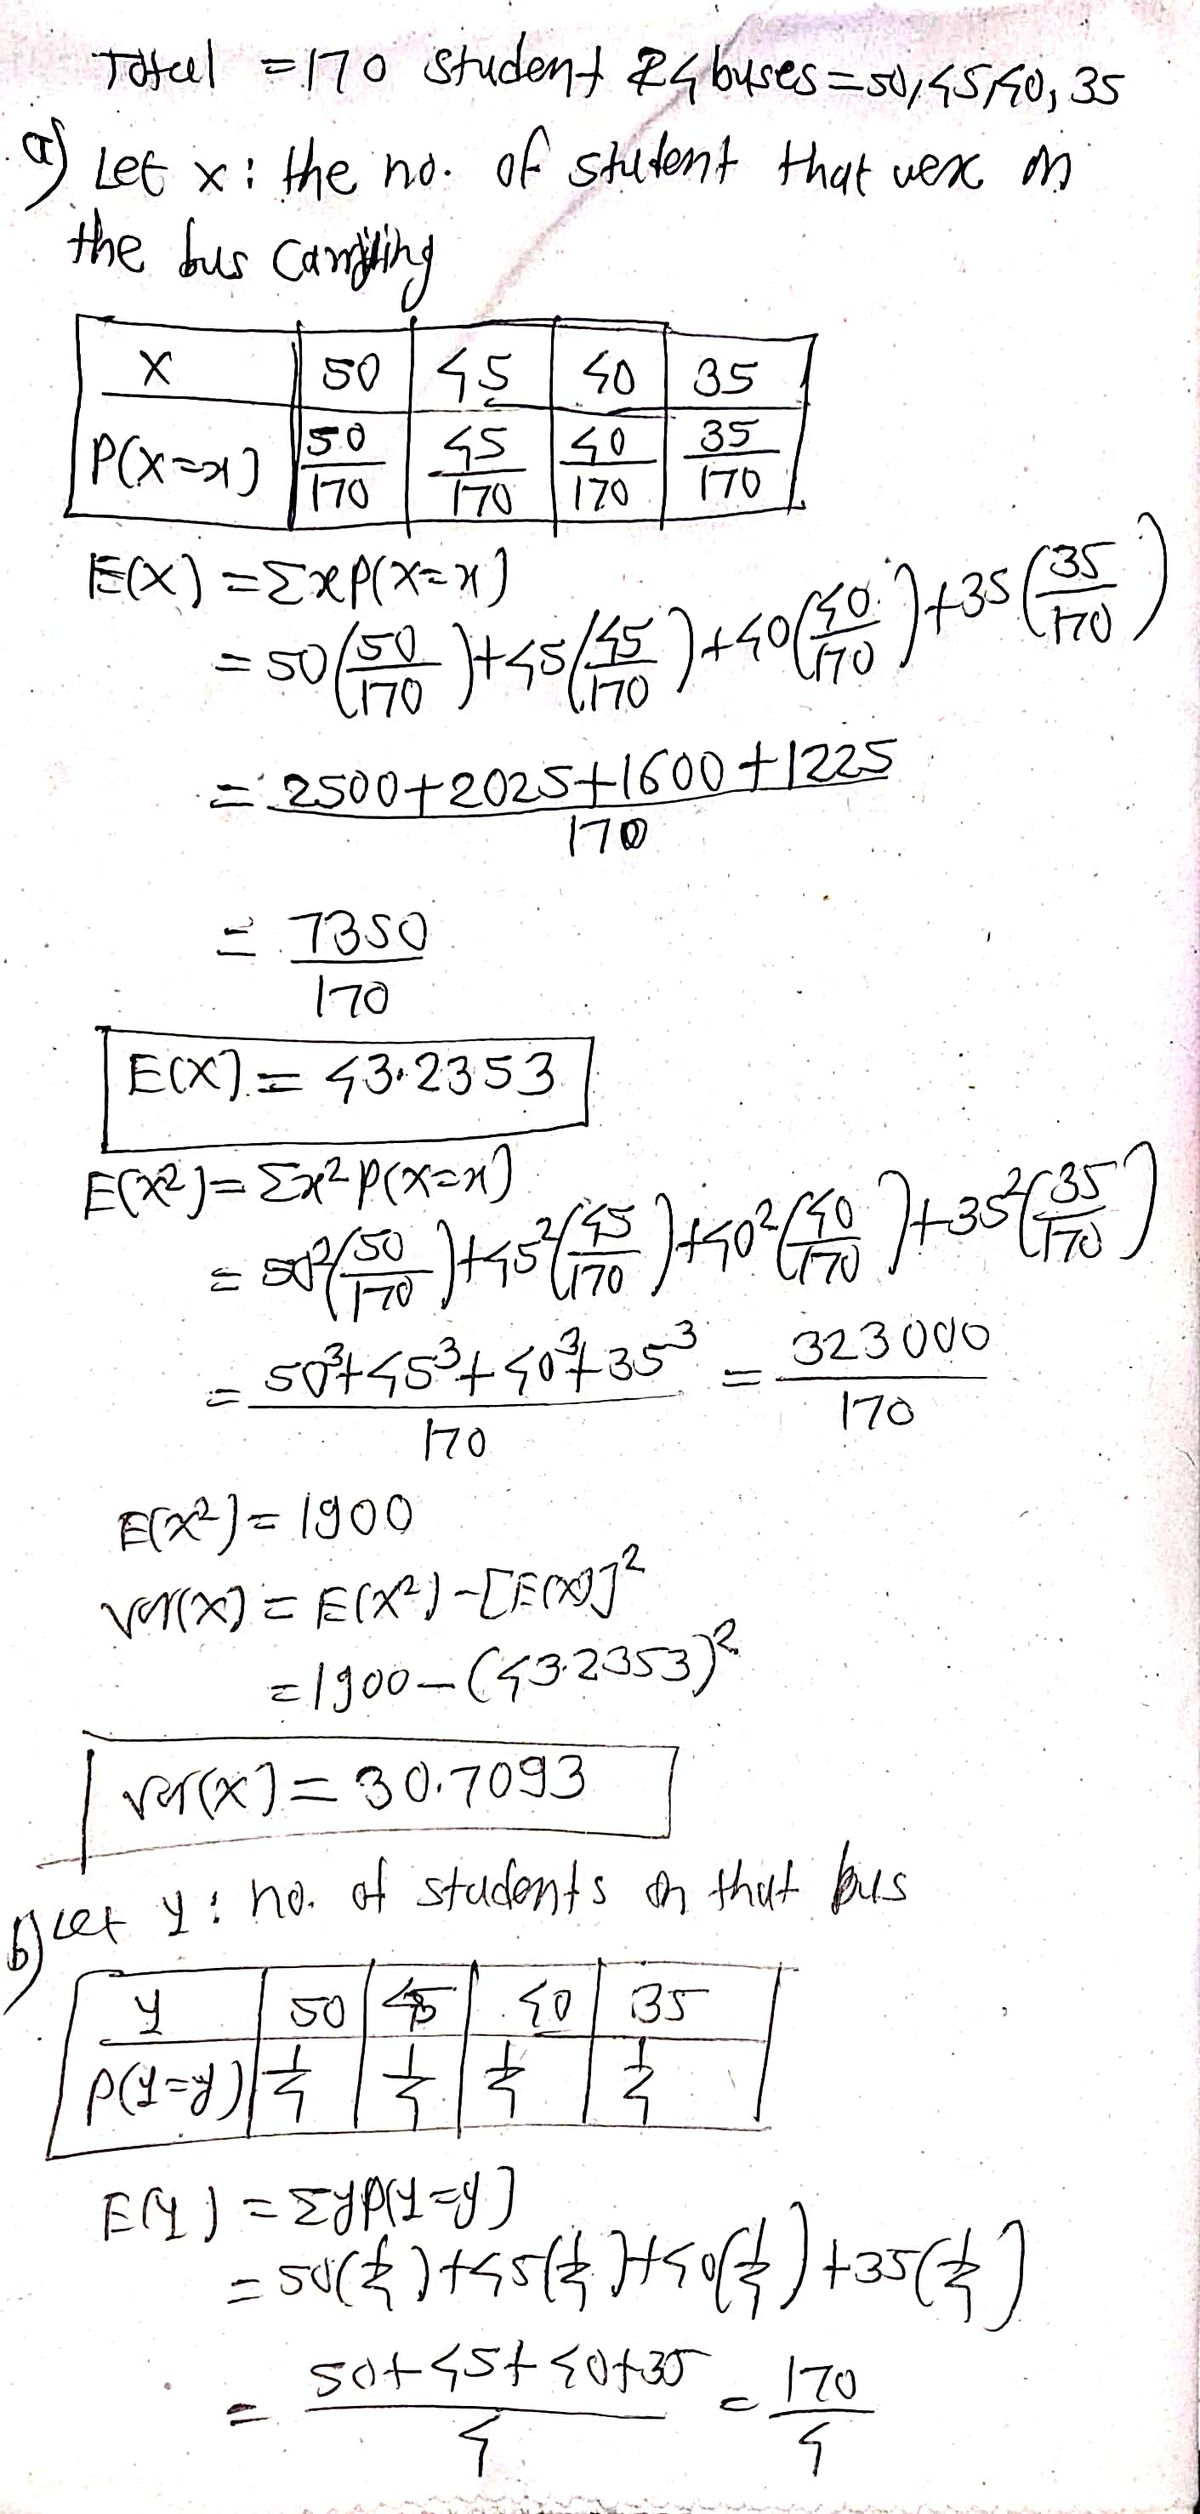 Total = 170 student & 4 buses = 50, 45, 40, 35
a) Let x : the no. of student that were on
the bus carrying
X 50 45 40 35
P(X=x) 50/170 45/170 40/170 35/170
E(X) = Σx P(X=x)
= 50(50/170) + 45(45/170) + 40(40/170) + 35(35/170)
= 2500+2025+1600+1225/170
= 7350/170
E(X) = 43.2353
E(X²) = Σx² P(X=x)
= 50²(50/170) + 45²(45/170) + 40²(40/170) + 35²(35/170)
= 50³+45³+40³+35³/170 = 323000/170
E(X²) = 1900
Var(X) = E(X²) - [E(X)]²
= 1900 - (43.2353)²
Var(X) = 30.7093
b) Let y : no. of students on that bus
y 50 45 40 35
P(Y=y) 1/4 1/4 1/4 1/4
E(Y) = Σy P(Y=y)
= 50(1/4) + 45(1/4) + 40(1/4) + 35(1/4)
= 50+45+40+35/4 = 170/4